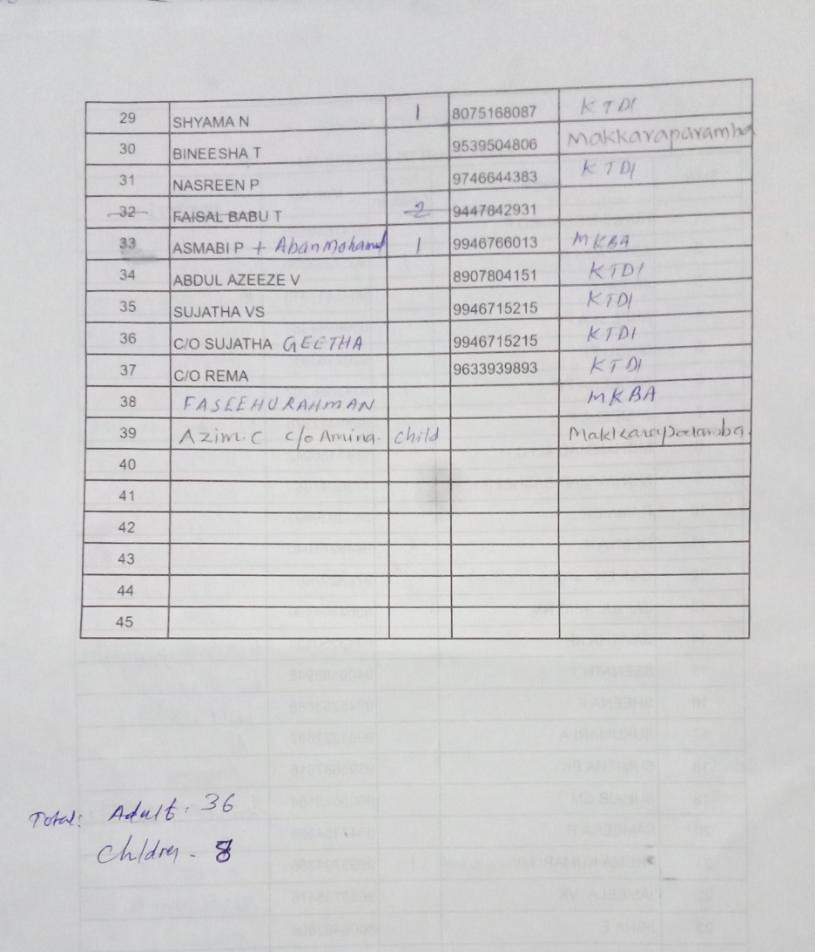 29 SHYAMA N 1 8075168087 KTDI
30 BINEESHA T 9539504806 Makkaraparamba
31 NASREEN P 9746644383 KTDI
32 FAISAL BABU T 2 9447642931
33 ASMABI P + Aban Mohamed 1 9946766013 MKBA
34 ABDUL AZEEZE V 8907804151 KTDI
35 SUJATHA VS 9946715215 KTDI
36 C/O SUJATHA GEETHA 9946715215 KTDI
37 C/O REMA 9633939893 KTDI
38 FASEEHURAHMAN MKBA
39 Azim.C c/o Amina. child
40
41
42
43
44
45
Total: Adult - 36
Chldren - 8